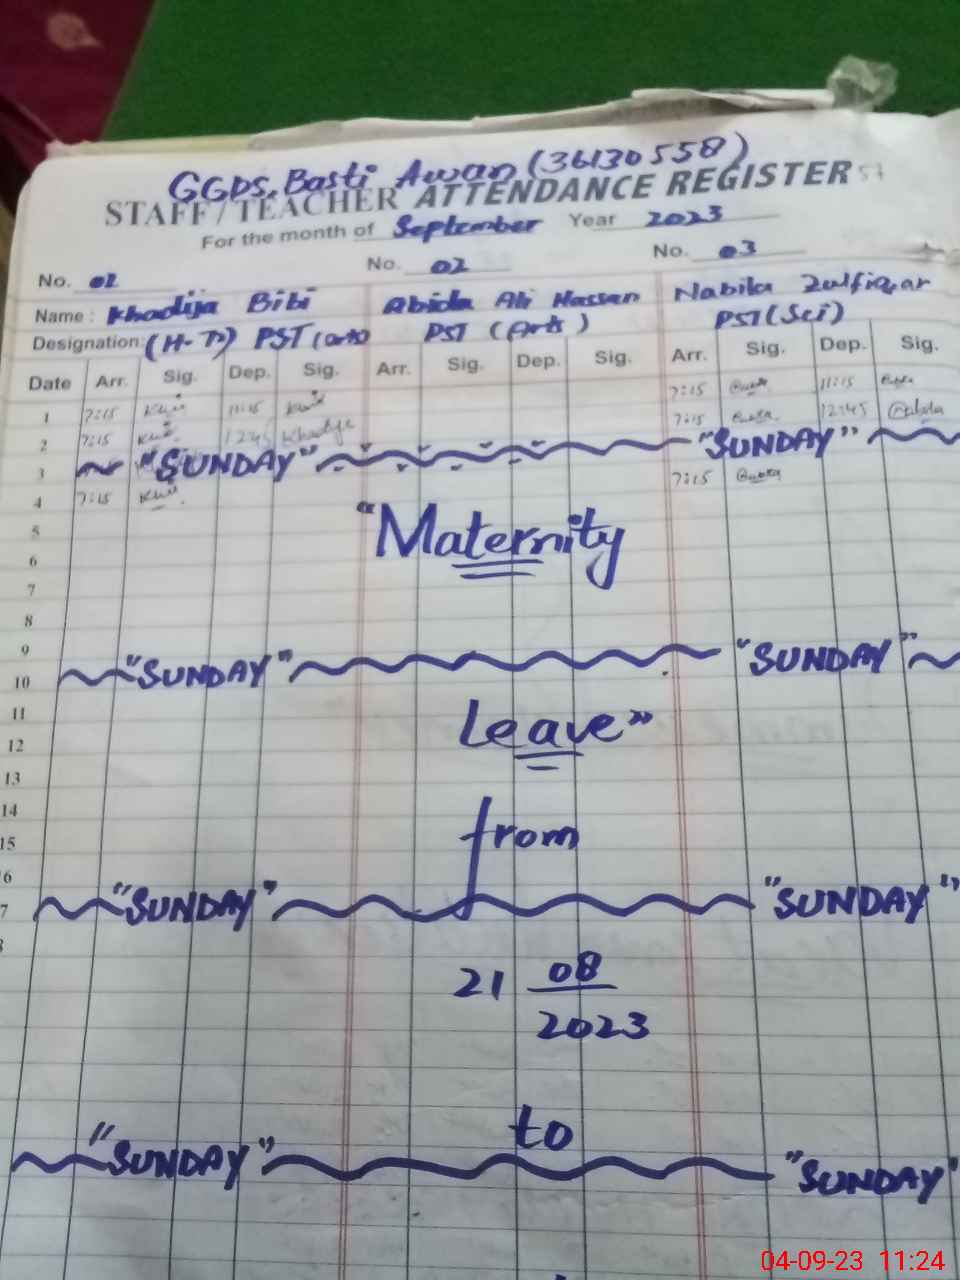 GGPS, Basti Awan (36130558)
STAFF / TEACHER ATTENDANCE REGISTER
For the month of September Year 2023
No. 01 No. 02 No. 03
Name : Khadija Bibi Abida Ali Hassan Nabila Zulfiqar
Designation: (H-Tr) PST (arts) PST (Arts) PST (Sci)
Date Arr. Sig. Dep. Sig. Arr. Sig. Dep. Sig. Arr. Sig. Dep. Sig.
1 7:15 11:15 7:15 11:15
2 7:15 12:45 Khadija 7:15 12:45
3 "SUNDAY" "SUNDAY"
4 7:15 7:15
5 "Maternity
6
7
8
9
10 "SUNDAY" "SUNDAY"
11 Leave"
12
13
14
15 from
6
7 "SUNDAY" "SUNDAY"
8
21 08
2023
to
"SUNDAY" "SUNDAY"
04-09-23 11:24